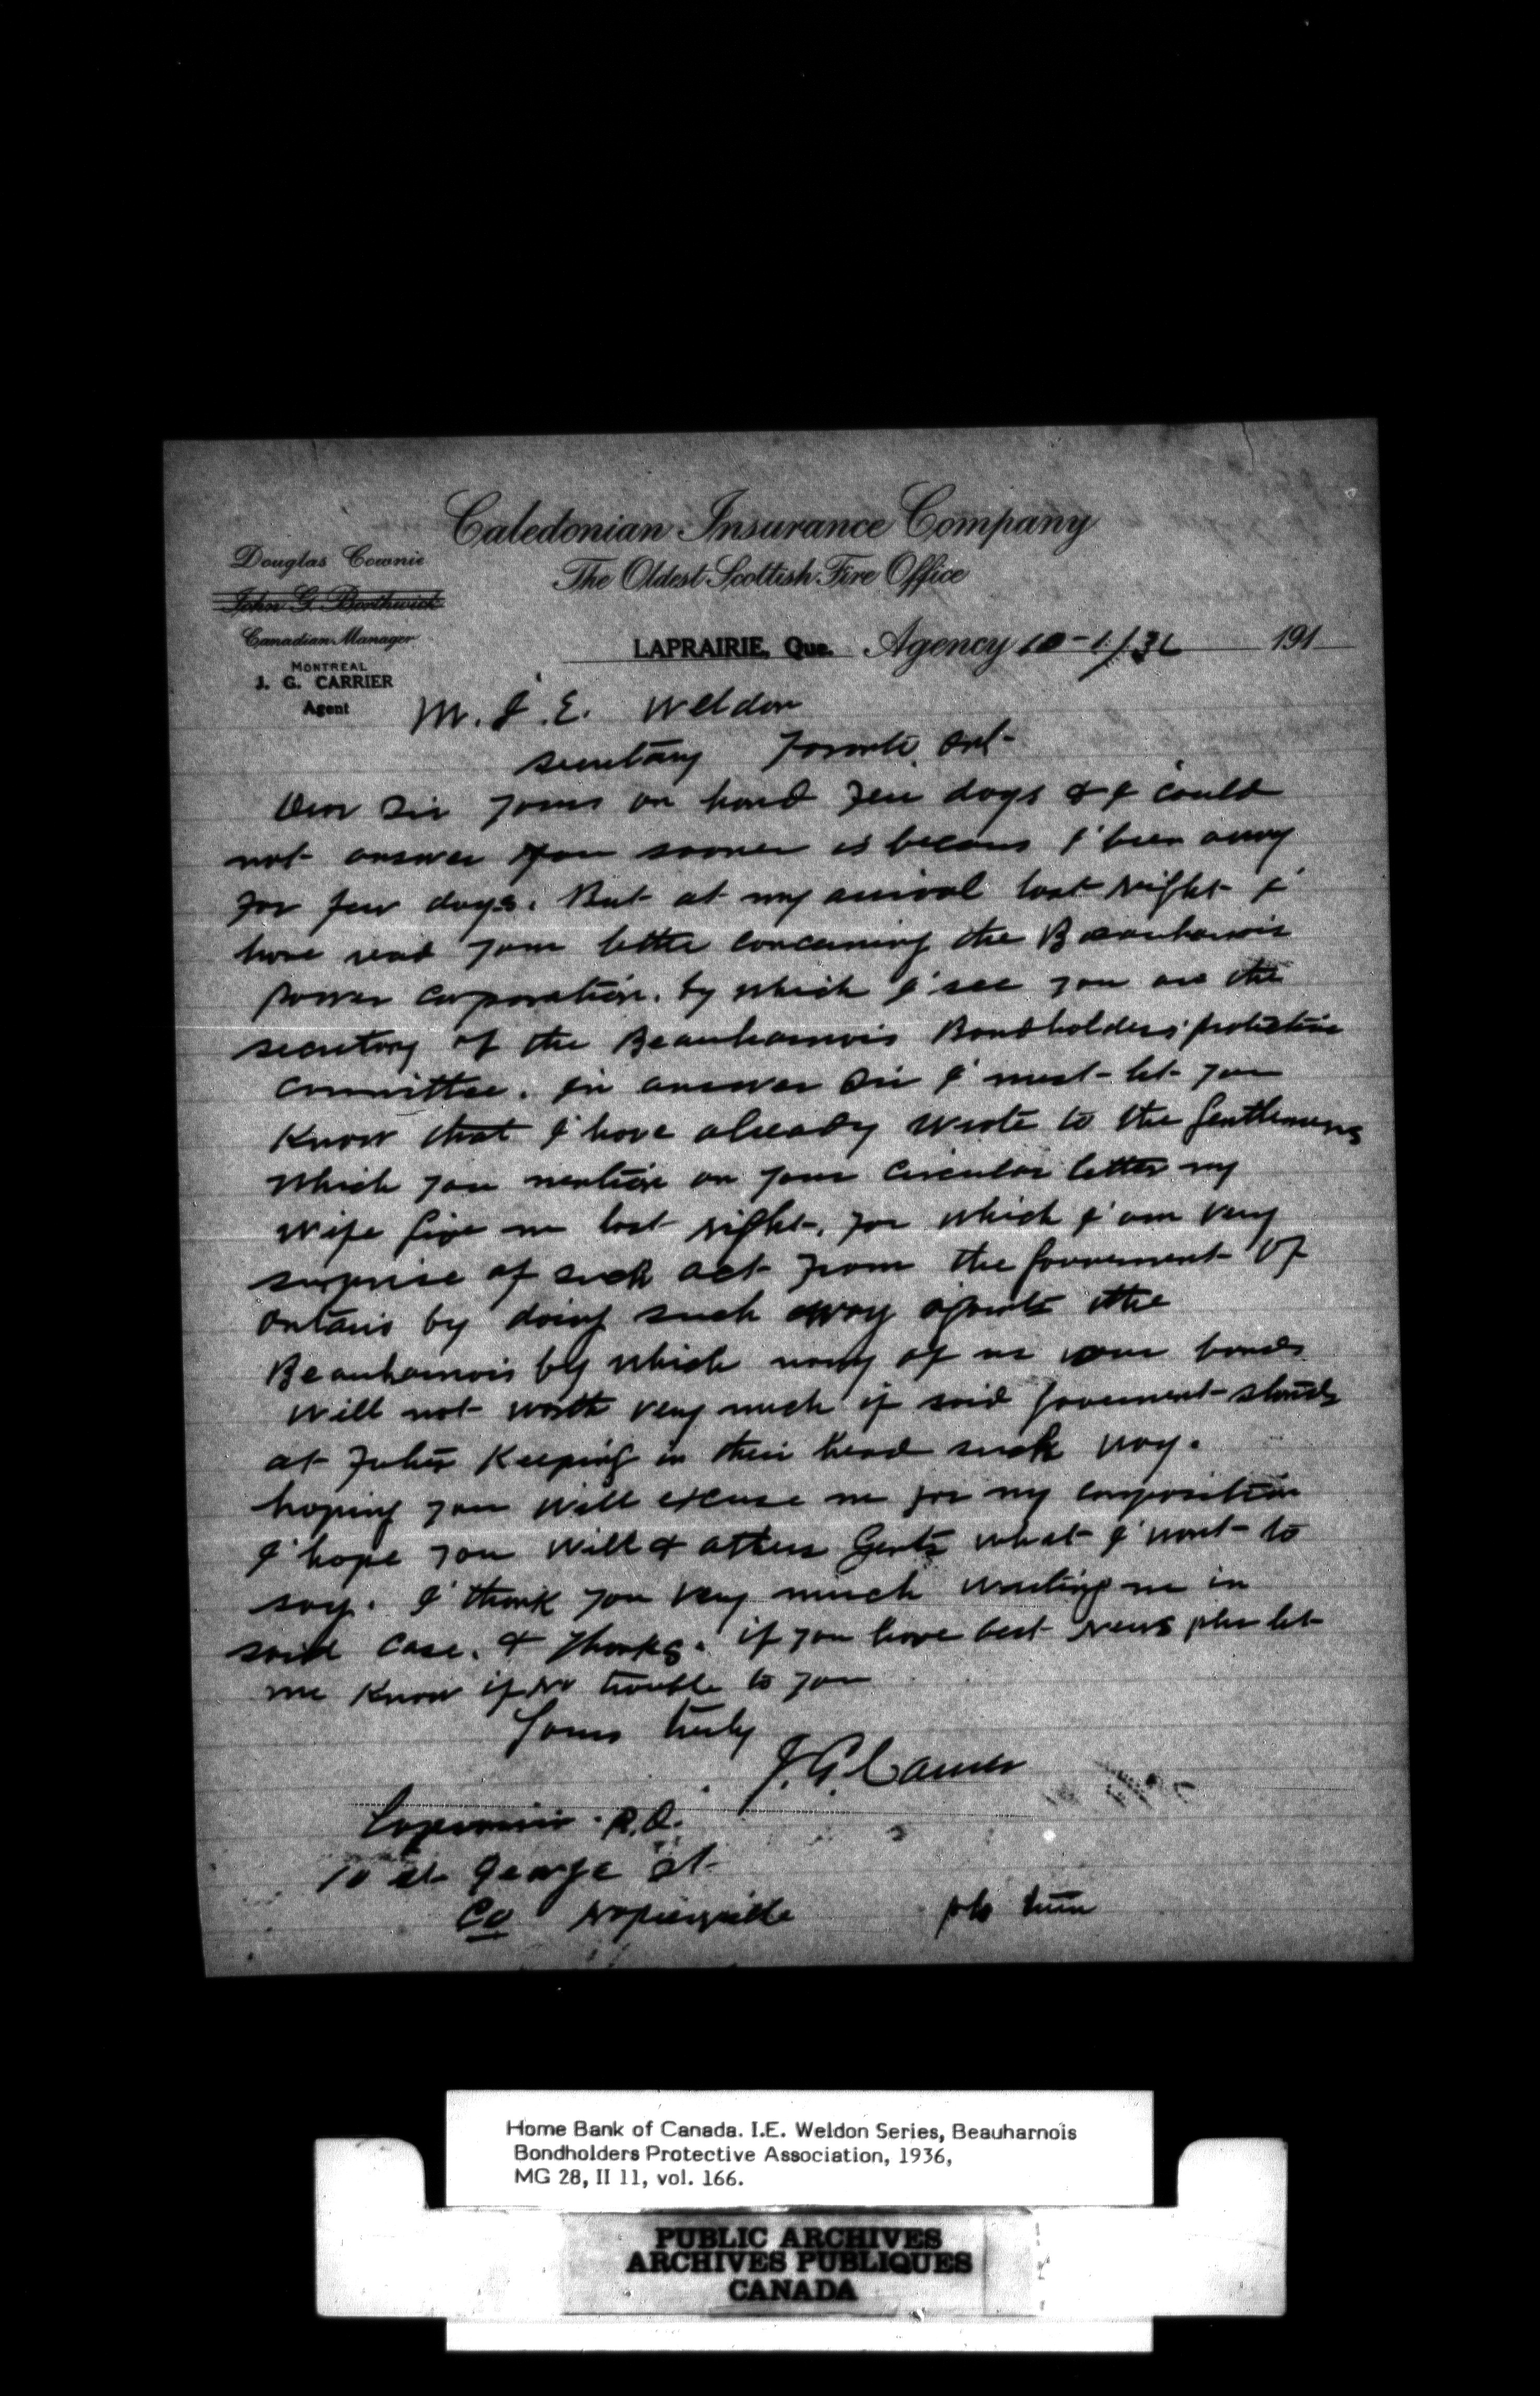 Caledonian Insurance Company
The Oldest Scottish Fire Office
Douglas Cownie
John G. Borthwick
Canadian Manager
MONTREAL
J. G. CARRIER
Agent
LAPRAIRIE, Que. Agency 10-1/36 191
M. I. E. Weldon
secretary Toronto Ont-
Dear Sir yours on hand few days & I could
not answer you sooner is becaus I been away
for few days. But at my arrival last night I
have read your letter concerning the Beauharnois
power corporation. by which I see you are the
secretary of the Beauharnois Bondholders protective
committee. in answer Sir I must let you
know that I have already wrote to the gentlemens
which you mention on your circular letter my
wife give me last night, for which I am very
surprise of such act from the government of
Ontario by doing such away against the
Beauharnois by which many of us our bonds
will not worth very much if said government stands
at keeping in their head such way.
hoping you will excuse me for my composition
I hope you will & others Gents what I want to
say. I thank you very much writing me in
said case. & thanks. if you have best news pls let
me know if no trouble to you
Yours truly
J. G. Carrier
Laprairie P.Q.
10 st George st
Co Napierville pls turn
Home Bank of Canada. I.E. Weldon Series, Beauharnois
Bondholders Protective Association, 1936,
MG 28, II 11, vol. 166.
PUBLIC ARCHIVES
ARCHIVES PUBLIQUES
CANADA